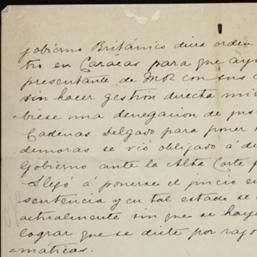 gobierno Británico diera orden
tro en Caracas para que ayu
presentante de
sin hacer gestión directa mi
biese una denegacion de jus
Cadenas Delgado para poner
demoras se vió obligado á de
Gobierno ante la Alta Corte
Llegó á ponerse el juicio en
sentencia y en tal estado se
actualmente sin que se haya
lograr que se dicte por razo
máticas.